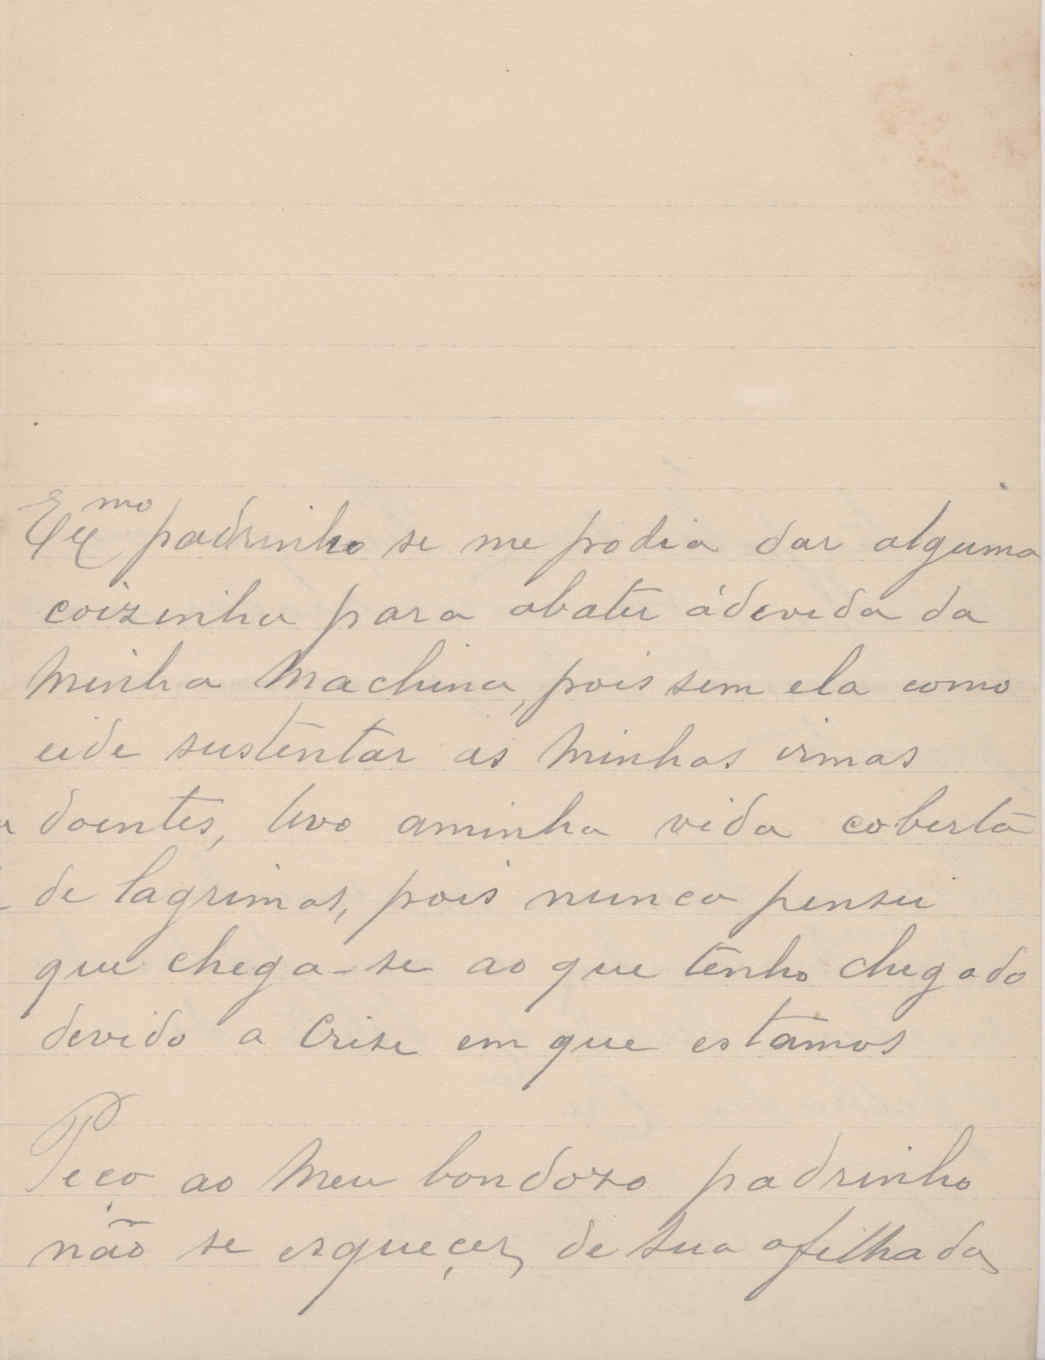 Exmo padrinho se me podia dar alguma
coizinha para abater ádevida da
minha machina, pois sem ela como
eide sustentar as minhas irmas
doentes, tivo aminha vida coberta
de lagrimas, pois nunca pensei
que chega-se ao que tenho chegado
devido a Crise em que estamos
Peço ao meu bondozo padrinho
não se esqueçer, de sua afilhada,